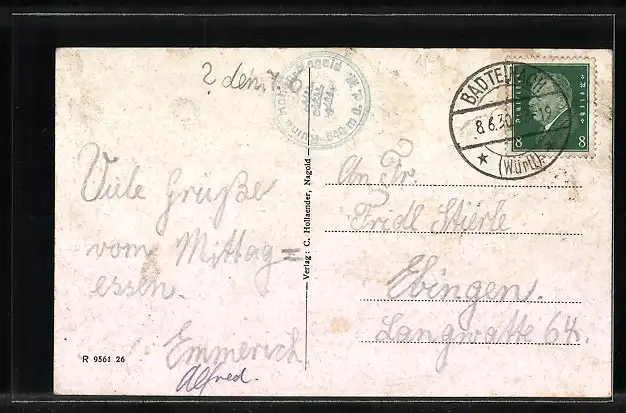 ? den
Viele Grüße
vom Mittag=
essen.
Emmerich
Alfred.
R 9561 26
Verlag: C. Hollaender, Nagold
Nagold
640 m ü.
BAD TEINACH
8.6.30
(Württ)
Deutsches Reich
8 8
An Fr.
Fridl Stierle
Ebingen.
Langwatte 64.